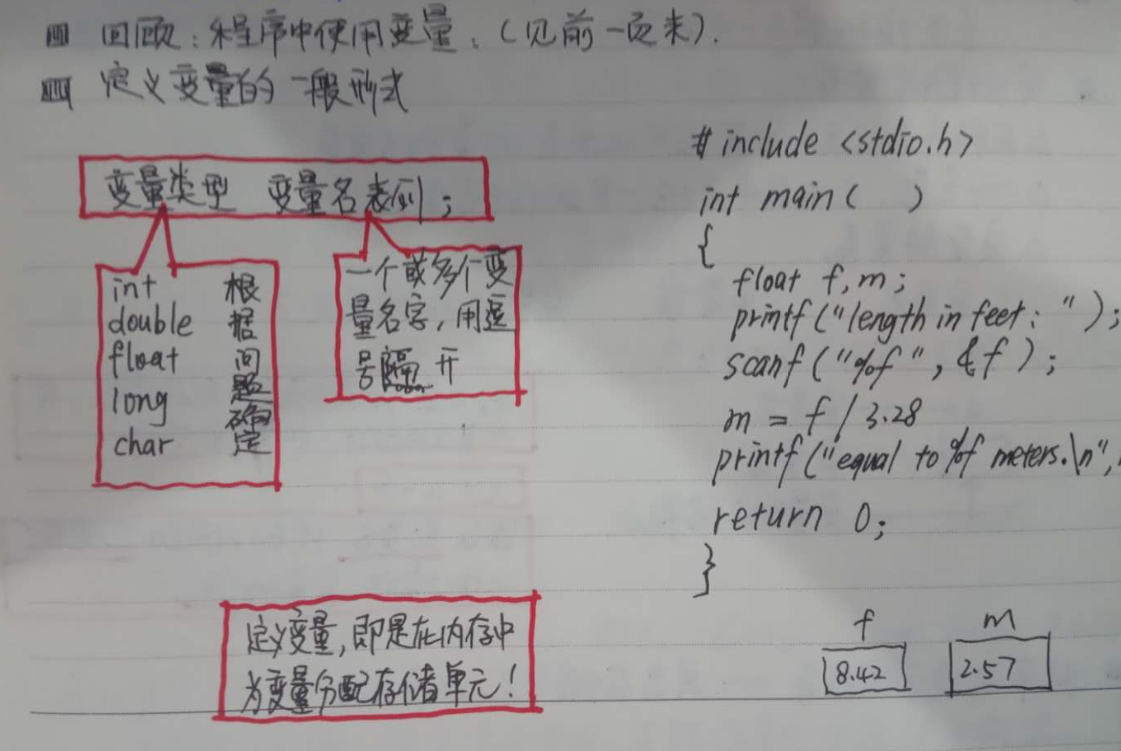 回顾：程序中使用变量：（见前一页末）.
定义变量的一般形式
变量类型 变量名表列；
int
double
float
long
char
根据问题确定
一个或多个变
量名字，用逗
号隔开
#include <stdio.h>
int main( )
{
float f,m;
printf("length in feet: ");
scanf("%f", &f);
m = f / 3.28
printf("equal to %f meters.\n",
return 0;
}
f m
8.42 2.57
定义变量，即是在内存中
为变量分配存储单元！